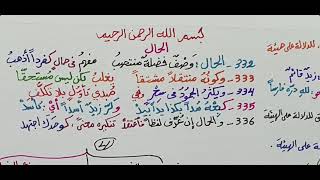 بسم الله الرحمن الرحيم
الحال
332- الحال: وصف فضلة منتصب مفهم في حال كفردا أذهب
333- وكونه منتقلا مشتقا يغلب لكن ليس مستحقا
334- ويكثر الجمود في سعر وفي مبدي تأول بلا تكلف
335- كبعه مدا بكذا يدا بيد وكر زيد أسدا أي كأسد
336- والحال إن عرف لفظا فاعتقد تنكيره معنى كوحدك اجتهد
للدلالة على هيئة
على الهيئة